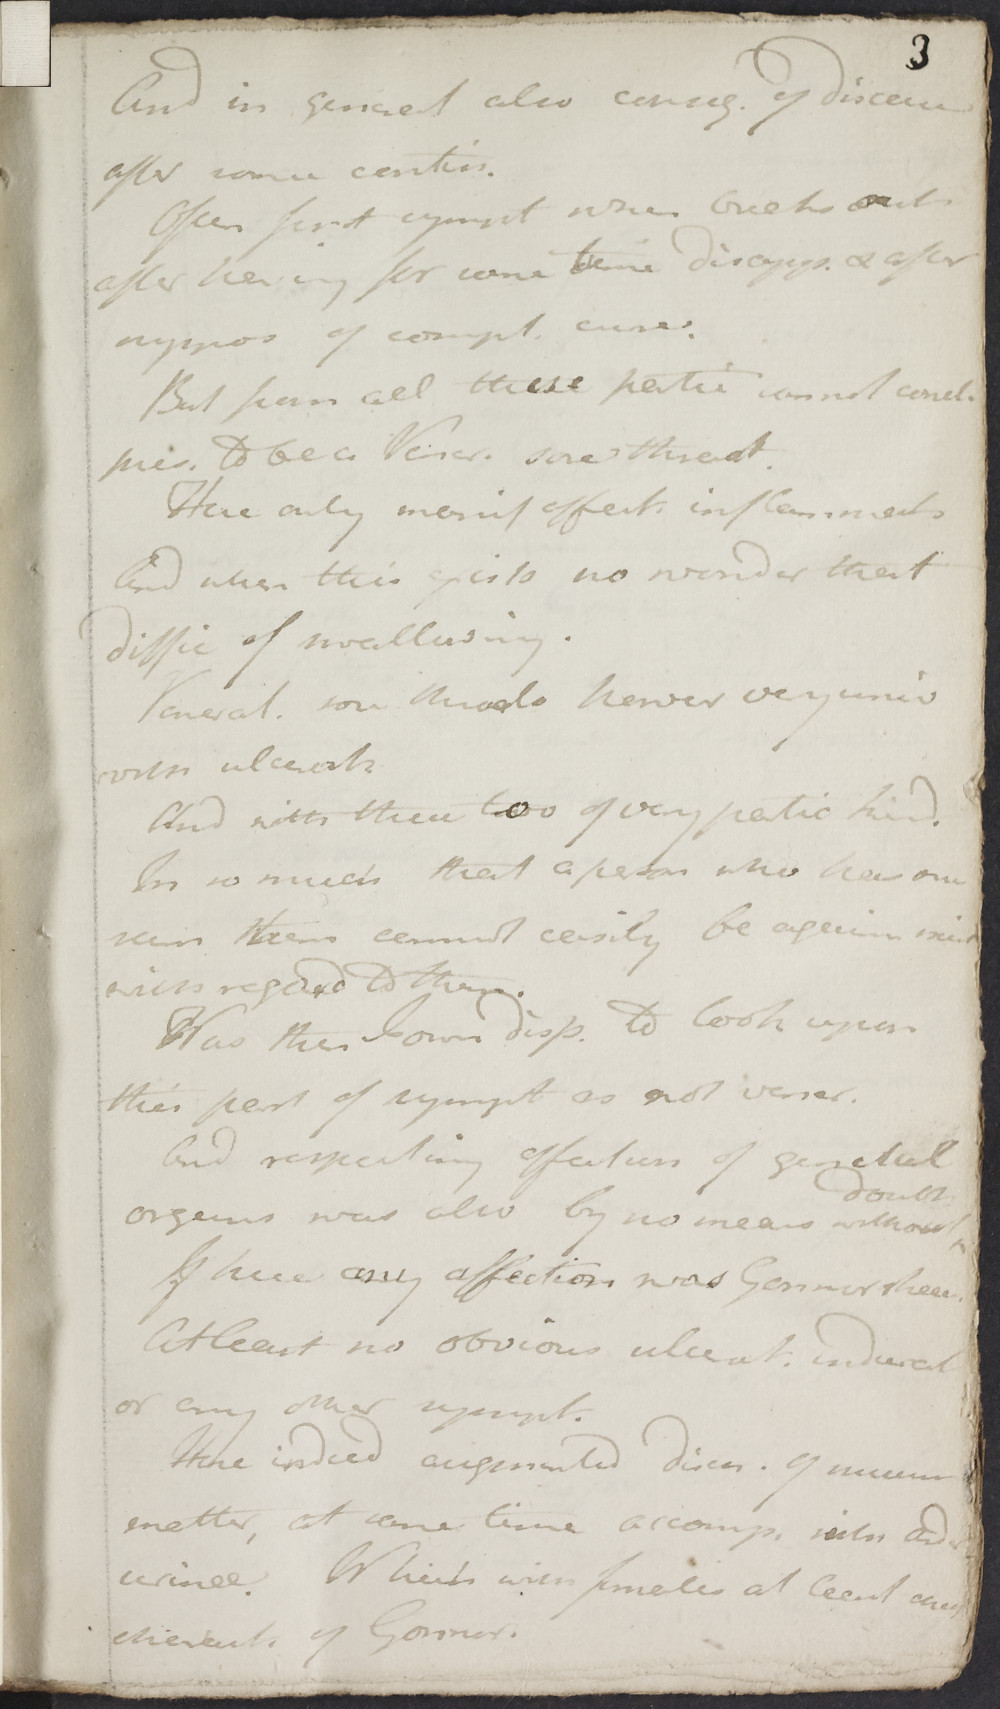 3
And in general also conseq. of disease
after some contin.
Often first sympt when breaks out
after having for some time disapp. & after
suppos of compt. cure.
But from all these partic cannot concl.
pres. to be a Vener. sore throat.
Here only manif affect. inflammat
And when this exists no wonder that
diffic of swallowing.
Venereal. sore throats however very univ
with ulcerat
And with these too of very partic kind.
In so much that a person who has once
seen them cannot easily be again
with regard to them.
Was then I own disp. to look upon
this part of sympt as not vener.
And respecting affection of genital
organs was also by no means without ^ doubt
If here any affection was Gonnorrheea.
At least no obvious ulcerat. indurat
or any other sympt.
Here indeed augmented disch. of mucous
matter, at same time accomp. with ardor
urinee. Which with females at least only
characts of Gonnor.